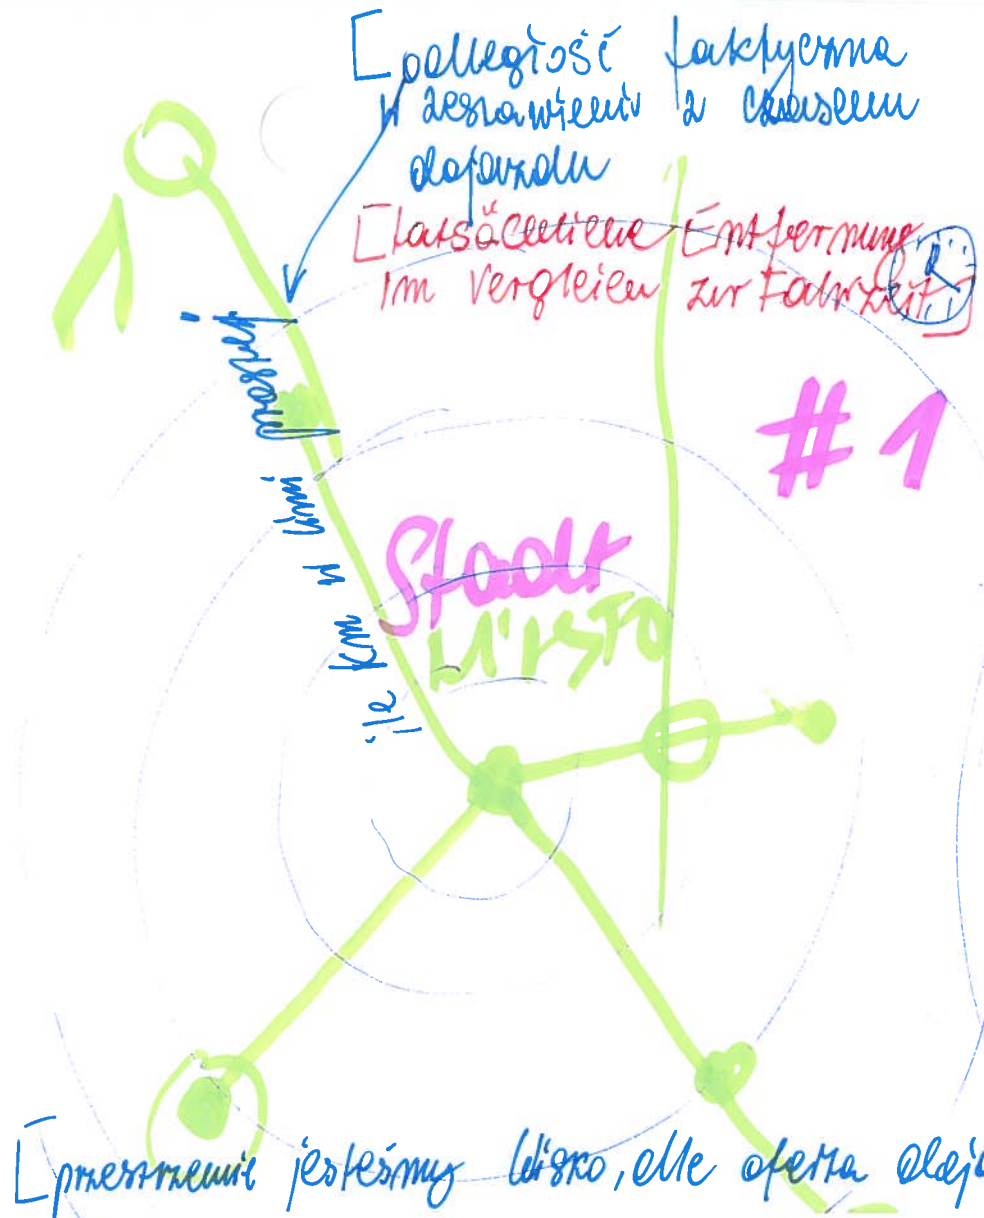 [odległość faktyczna
w zestawieniu z czasem
dojazdu
[tatsächliche Entfernung
im Vergleich zur Fahrzeit]
1
#1
ile km w linii prostej
Stadt
MIASTO
[przestrzennie jesteśmy blisko, ale oferta